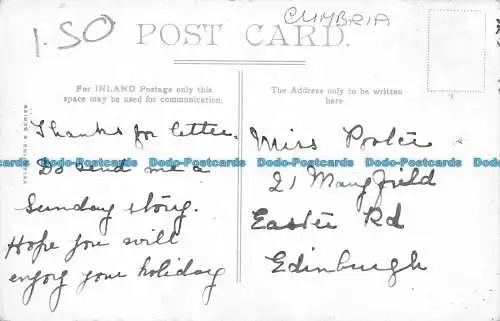 CUMBRIA
1.50
POST CARD.
For INLAND Postage only this
space may be used for communication.
The Address only to be written
here.
VALENTINE'S SERIES
Thanks for letter.
Do send me a
Sunday story.
Hope you will
enjoy your holiday
Miss
21 Mayfield
Easter Rd
Edinburgh
Dodo-Postcards Dodo-Postcards Dodo-Postcards